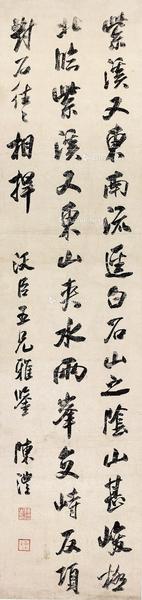 紫溪又東南流逕白石山之陰山甚峻極
北臨紫溪又東山夾水兩峯交峙反項
對石往往相捍
沃臣五兄雅鑒 陳澧